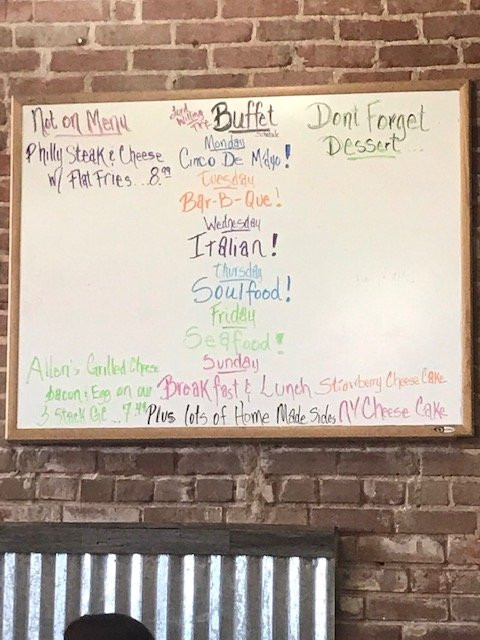 Not on Menu
Philly Steak & Cheese
w/ Flat Fries...8.99
Allen's Grilled Cheese
bacon & Egg on our
3 Stack G.C...7.99
Buffet
Schedule
Monday
Cinco De Mayo!
Tuesday
Bar-B-Que!
Wednesday
Italian!
Thursday
Soulfood!
Friday
Seafood!
Sunday
Breakfast & Lunch
Plus lots of Home Made Sides
Dont Forget
Dessert...
Strawberry Cheese Cake
NY Cheese Cake